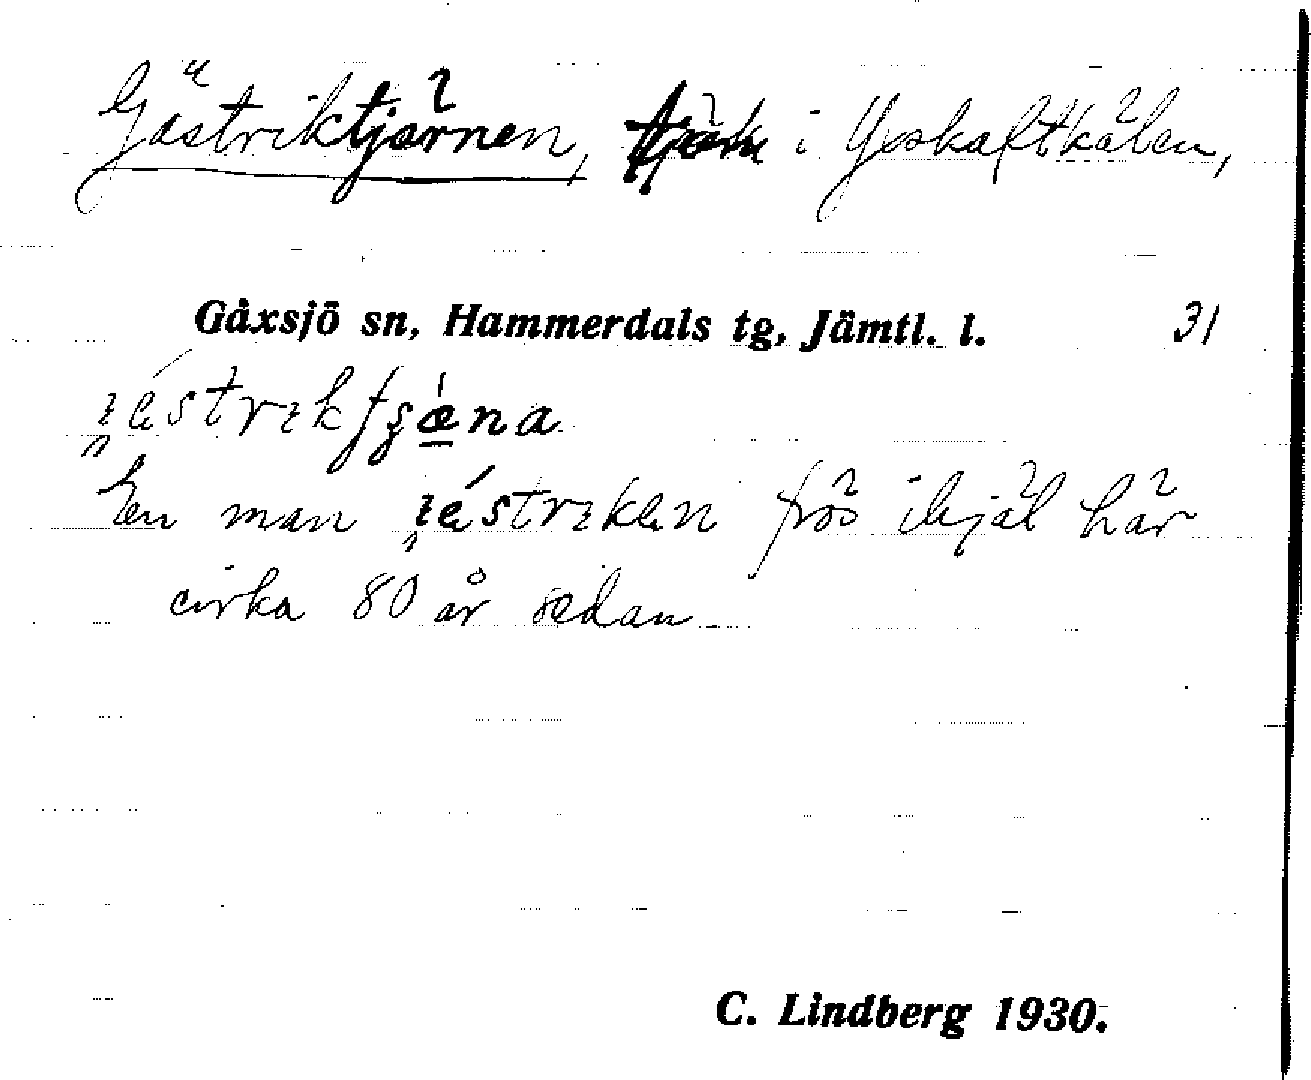 Gästriktjärnen, tjärn i Yxskaftkälen,
Gåxsjö sn, Hammerdals tg, Jämtl. l. 31
En man frös ihjäl här
cirka 80 år sedan
C. Lindberg 1930.